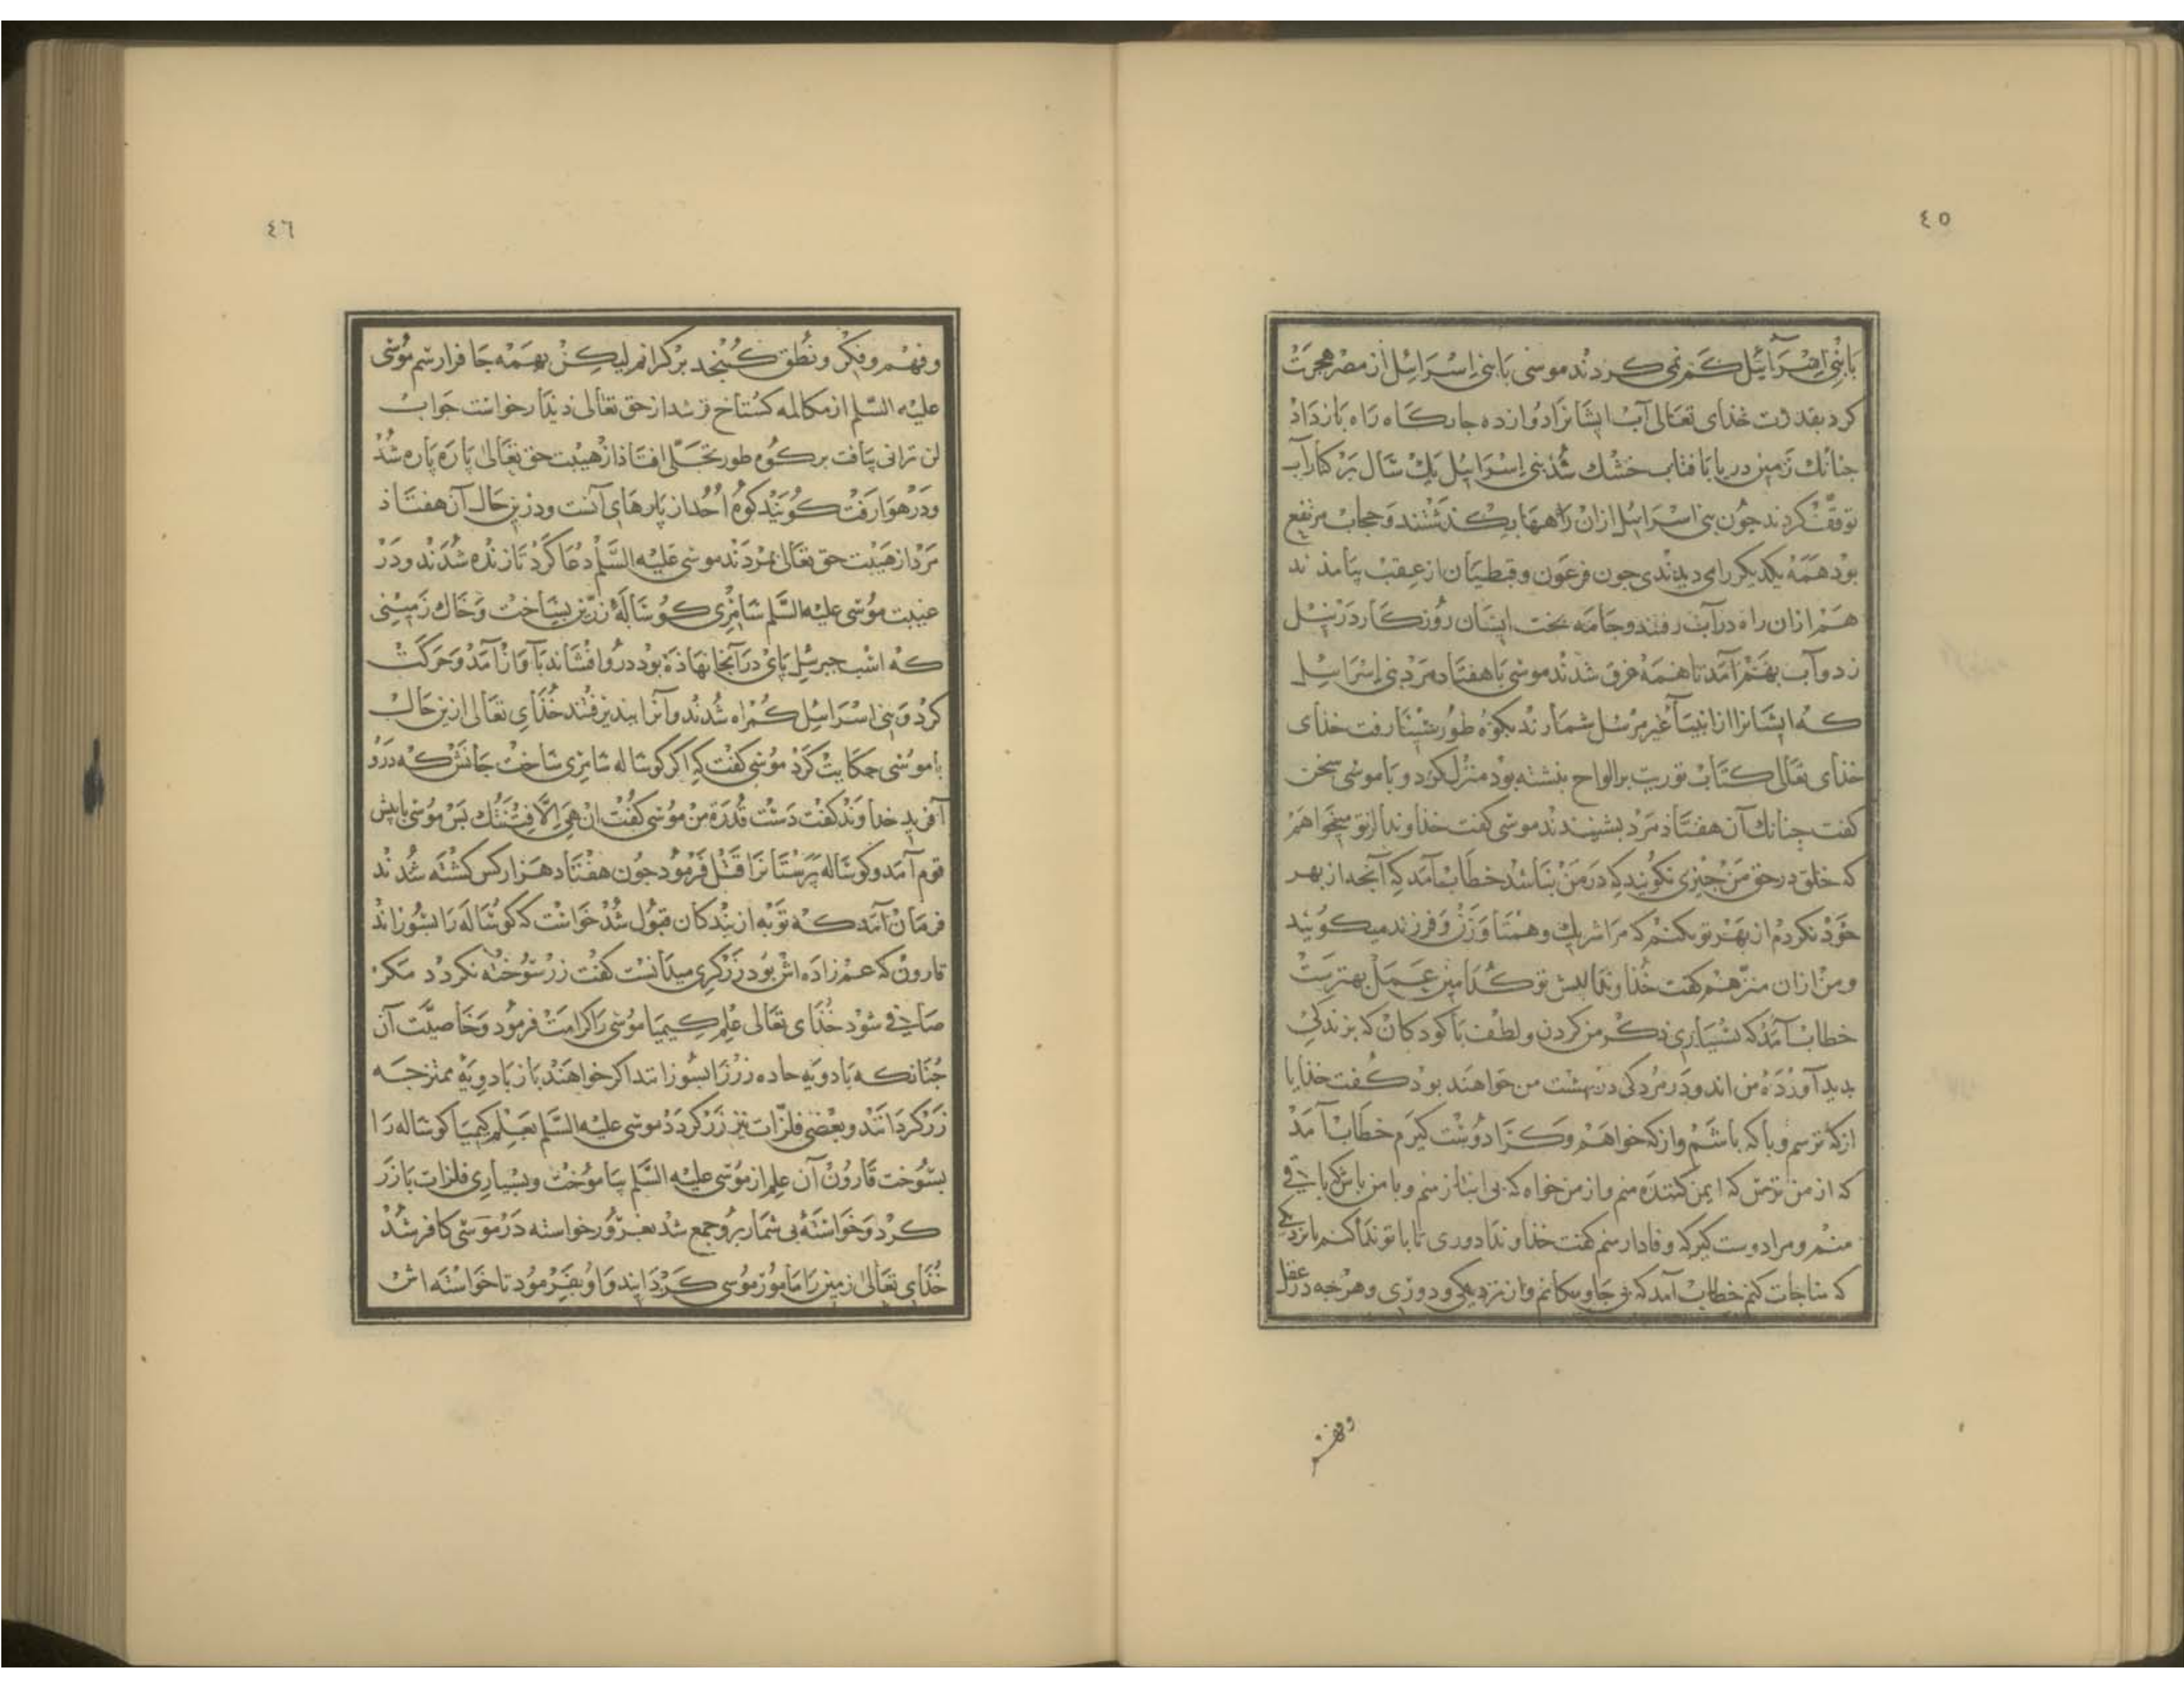 ٤٥
بابنی اسرآئیل کم نمی کردند موسی بابنی اسرائیل از مصر هجرت
کرد بقدرت خدای تعالی آب ایشانرا دوازده جایگاه راه بازداد
جنانك زمین دریا بافتاب خشك شد بنی اسرائیل یك سال بر کنار آب
توقف کردند جون بنی اسرائیل ازان راهها بکذشتند و حجاب مرتفع
بود همه یکدیکر رای دیدندی جون فرعون و قبطیان از عقب بیامذند
هم ازان راه در آب رفتند و جامه بخت ایشان روزکار در نیل
زد و آب بهم آمد تا همه غرق شدند موسی با هفتاد مرد بنی اسرائیل
که ایشانرا از انبیآ غیر مرسل شمارند بکوه طور سینا رفت خذای
خذای تعالی کتاب توریت بر الواح بنشته بود منزل کرد و با موسی سخن
کفت جنانك آن هفتاذ مرد بشنیدند موسی کفت خذاوندا از تو میخواهم
که خلق در حق من جیزی نکویند که در من نباشد خطاب آمد که آنجه از بهر
خود نکردم از بهر تو نکنم که مرا شریك و همتا و زن و فرزند میکویند
و من ازان منزهم کفت خذاوندا بیش تو کدامین عمل بهترست
خطاب آمد که بسیاری ذکر من کردن و لطف با کودکان که بزندکی
بدید آورده من اند و در مردکی در بهشت من خواهند بود کفت خذایا
از که ترسم و با که باشم و از که خواهم و کرا دوست کیرم خطاب آمد
که از من ترس که ایمن کننده منم و از من خواه که بی انباز منم و با من باش که باقی
منم و مرا دوست کیر که وفادار منم کفت خذاوندا دوری تا با تو ندا کنم یا نزدیکی
که مناجات کنم خطاب آمد که بی جا و مکانم و از نزدیکی و دوری و هرجه در عقل
وفهم
٤٦
و فهم و فکر و نطق کنجد بر کرانم لیکن بهمه جا فرا رسم موسی
علیه السلم از مکالمه کستاخ تر شد از حق تعالی دیدار خواست جواب
لن ترانی یافت بر کوه طور تجلی افتاذ از هیبت حق تعالی پاره پاره شد
و در هوا رفت کویند کوه احد از پارهای آنست و درین حال آن هفتاذ
مرد از هیبت حق تعالی بمردند موسی علیه السلم دعا کرد تا زنده شدند و در
غیبت موسی علیه السلم سامری کوساله زرین بساخت و خاك زمینی
که اسب جبرئیل پای در آنجا نهاذه بود درو افشاند بآواز آمد و حرکت
کرد و بنی اسرائیل کمراه شدند و آنرا ببذیرفتند خذای تعالی ازین حال
با موسی حکایت کرد موسی کفت که اکر کوساله سامری ساخت جانش که درو
آفرید خداوند کفت دست قدرة من موسی کفت ان هی الا فتنتك بس موسی با پیش
قوم آمد و کوساله پرستانرا قتل فرمود جون هفتاد هزار کس کشته شدند
فرمان آمد که توبه از بندکان قبول شد خواست که کوساله را بسوزاند
قارون که عم زاده اش بود زرکری میدانست کفت زر سوخته نکردد مکر
صافی شود خذای تعالی علم کیمیا موسی را کرامت فرمود و خاصیت آن
جنانکه بادویه حاده زر را بسوزانند اکر خواهند باز بادویه ممتزجه
زر کردانند و بعضی فلزات نیز زر کردد موسی علیه السلم بعلم کیمیا کوساله را
بسوخت قارون آن علم از موسی علیه السلم بیاموخت و بسیاری فلزات با زر
کرد و خواسته بی شمار برو جمع شد بغرور خواسته در موسی کافر شد
خذای تعالی زمین را مامور موسی کردانید و او بفرمود تا خواسته اش